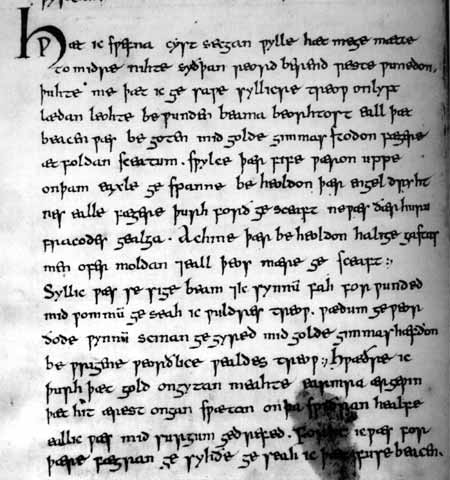 Hwæt ic swefna cyst secgan wylle hæt mege mætte
to midre nihte syðþan reord berend reste wunedon.
þuhte me þæt ic ge sawe syllicre treow onlyft
lædan leohte be wunden beama beorhtost eall þæt
beacen wæs be goten mid golde gimmas stodon fægere
æt foldan sceatum. swylce þær fife wæron uppe
onþam eaxle ge spanne be heoldon þær engel dryht
nes ealle fægere þurh forð ge sceaft ne wæs ðær huru
fracodes gealga. Ac hine þær be heoldon halige gastas
men ofer moldan ⁊eall þeos mære ge sceaft :
Syllic wæs se sige beam ⁊ic synnū fah for wunded
mid wommū ge seah ic wuldres treow. wædum ge weor
ðode wynnū scinan ge gyred mid golde gimmas hæfdon
be wrigene weorðlice wealdes treow ⁊ Hwæðre ic
þurh þæt gold ongytan meahte earmra ærgewin
þæt hit ærest ongan swætan onþa swiðran healfe
eall ic wæs mid surgum gedrefed. Forht ic wæs for
þære fægran ge syhðe ge seah ic þæt fuse beacen.